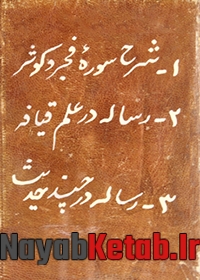 ۱- شرح سورهٔ فجر و کوثر
۲- رساله در علم قیافه
۳- رساله در چند حدیث
NayabKetab.Ir